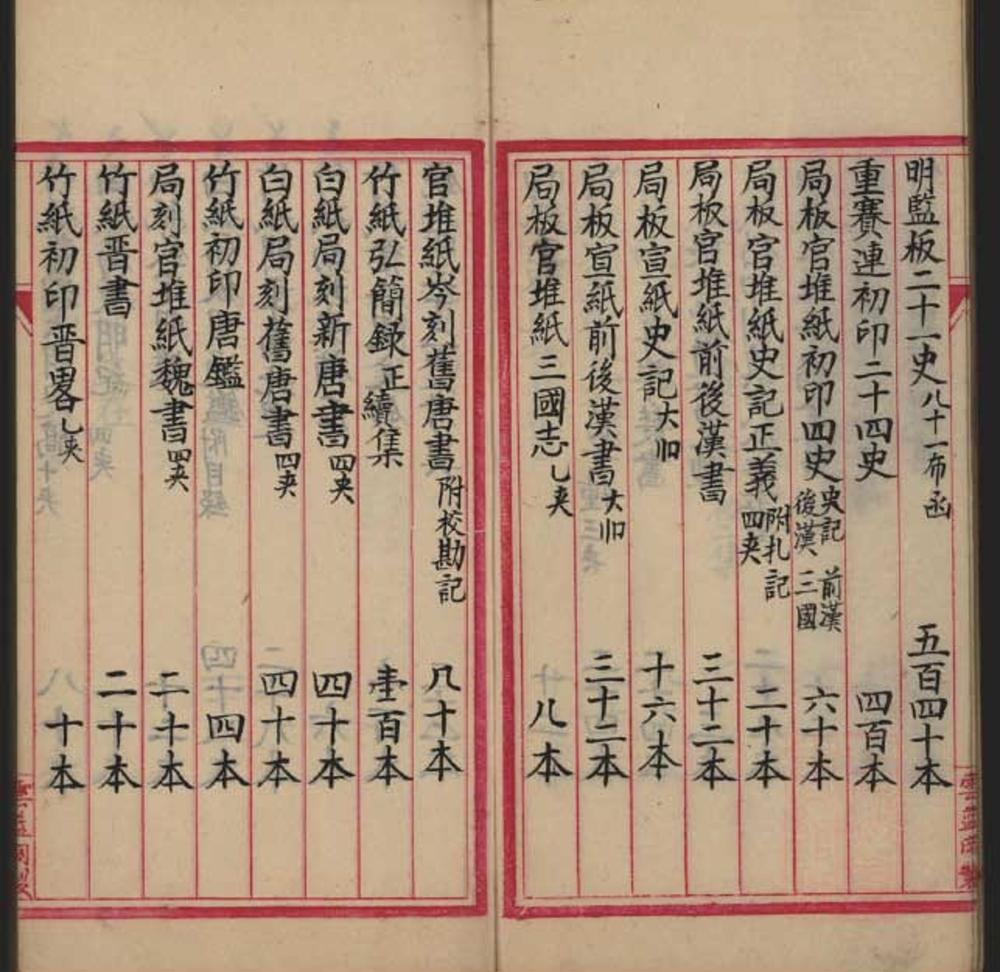 明監板二十一史 八十一布函 五百四十本
重賽連初印二十四史 四百本
局板官堆紙初印四史 史記 前漢 後漢 三國 六十本
局板官堆紙史記正義 附扎記 四夾 二十本
局板官堆紙前後漢書 三十二本
局板宣紙史記 大 十六本
局板宣紙前後漢書 大 三十二本
局板官堆紙三國志 乚夾 八本
官堆紙岑刻舊唐書 附校勘記 八十本
竹紙弘簡録 正續集 壹百本
白紙局刻新唐書 四夾 四十本
白紙局刻舊唐書 四夾 四十本
竹紙初印唐鑑 四本
局刻官堆紙魏書 四夾 二十本
竹紙晋書 二十本
竹紙初印晋畧 乚夾 十本